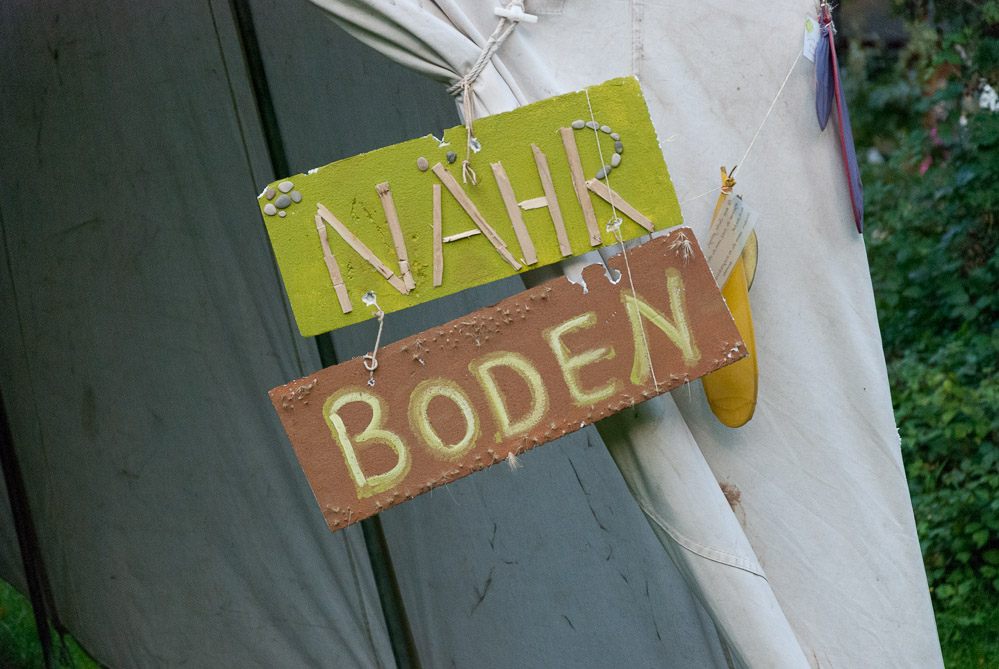 NÄHR
BODEN